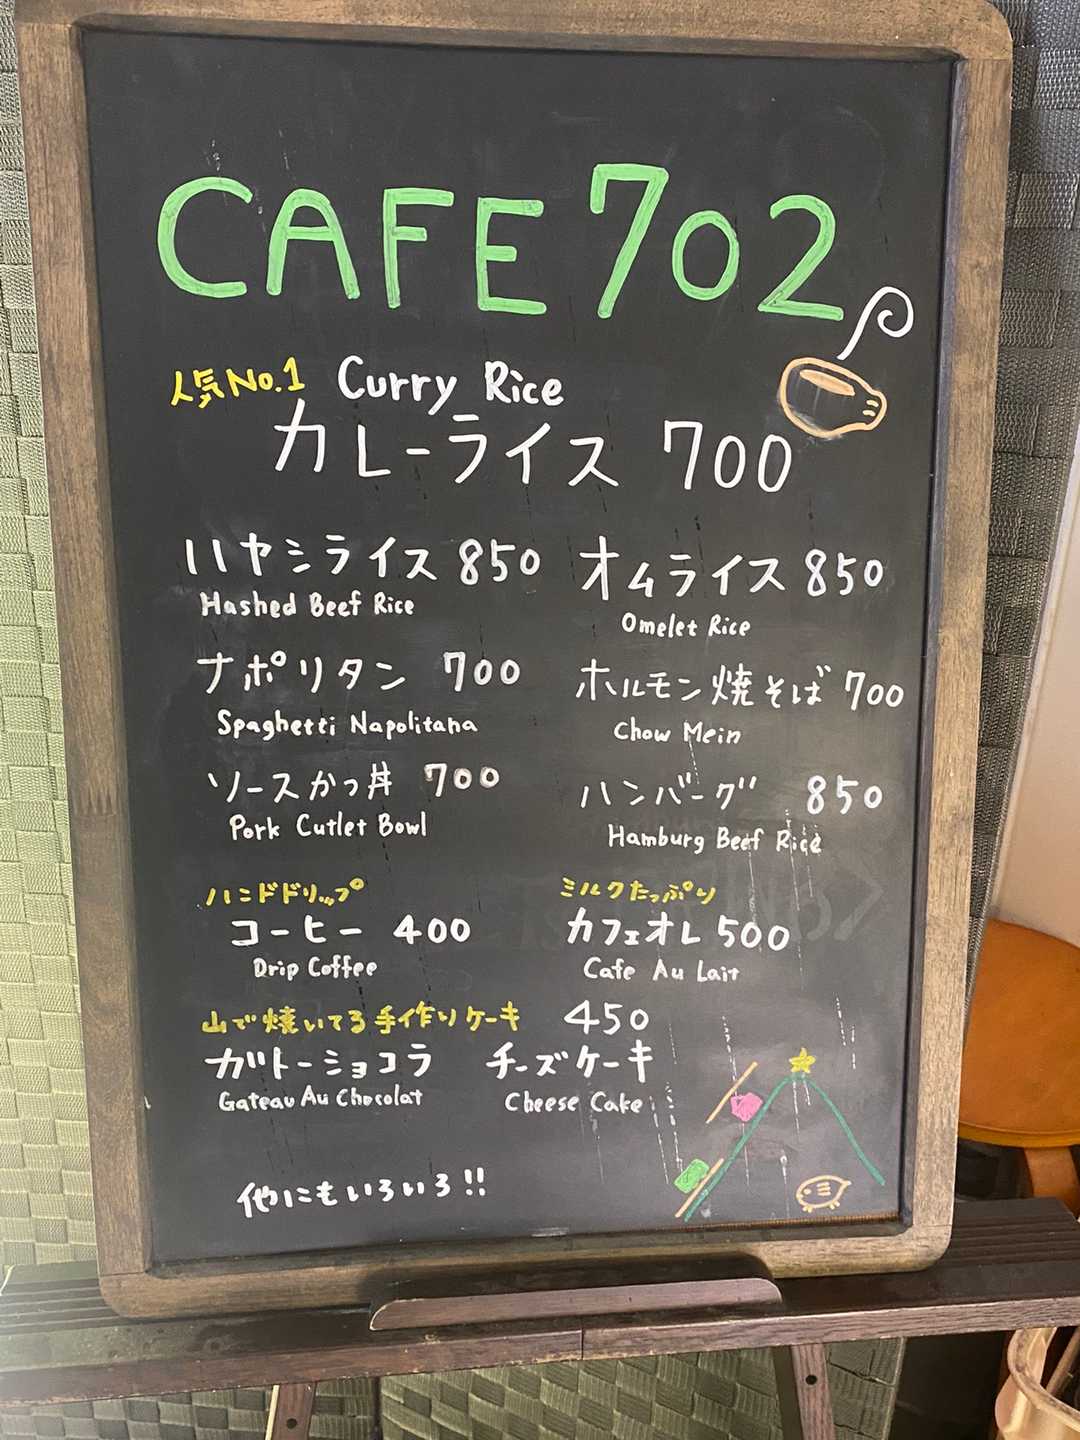 CAFE 702
人気No.1 Curry Rice
カレーライス 700
ハヤシライス 850
Hashed Beef Rice
オムライス 850
Omelet Rice
ナポリタン 700
Spaghetti Napolitana
ホルモン焼そば 700
Chow Mein
ソースかつ丼 700
Pork Cutlet Bowl
ハンバーグ 850
Hamburg Beef Rice
ハンドドリップ
コーヒー 400
Drip Coffee
ミルクたっぷり
カフェオレ 500
Cafe Au Lait
山で焼いてる手作りケーキ 450
ガトーショコラ チーズケーキ
Gateau Au Chocolat Cheese Cake
他にもいろいろ!!